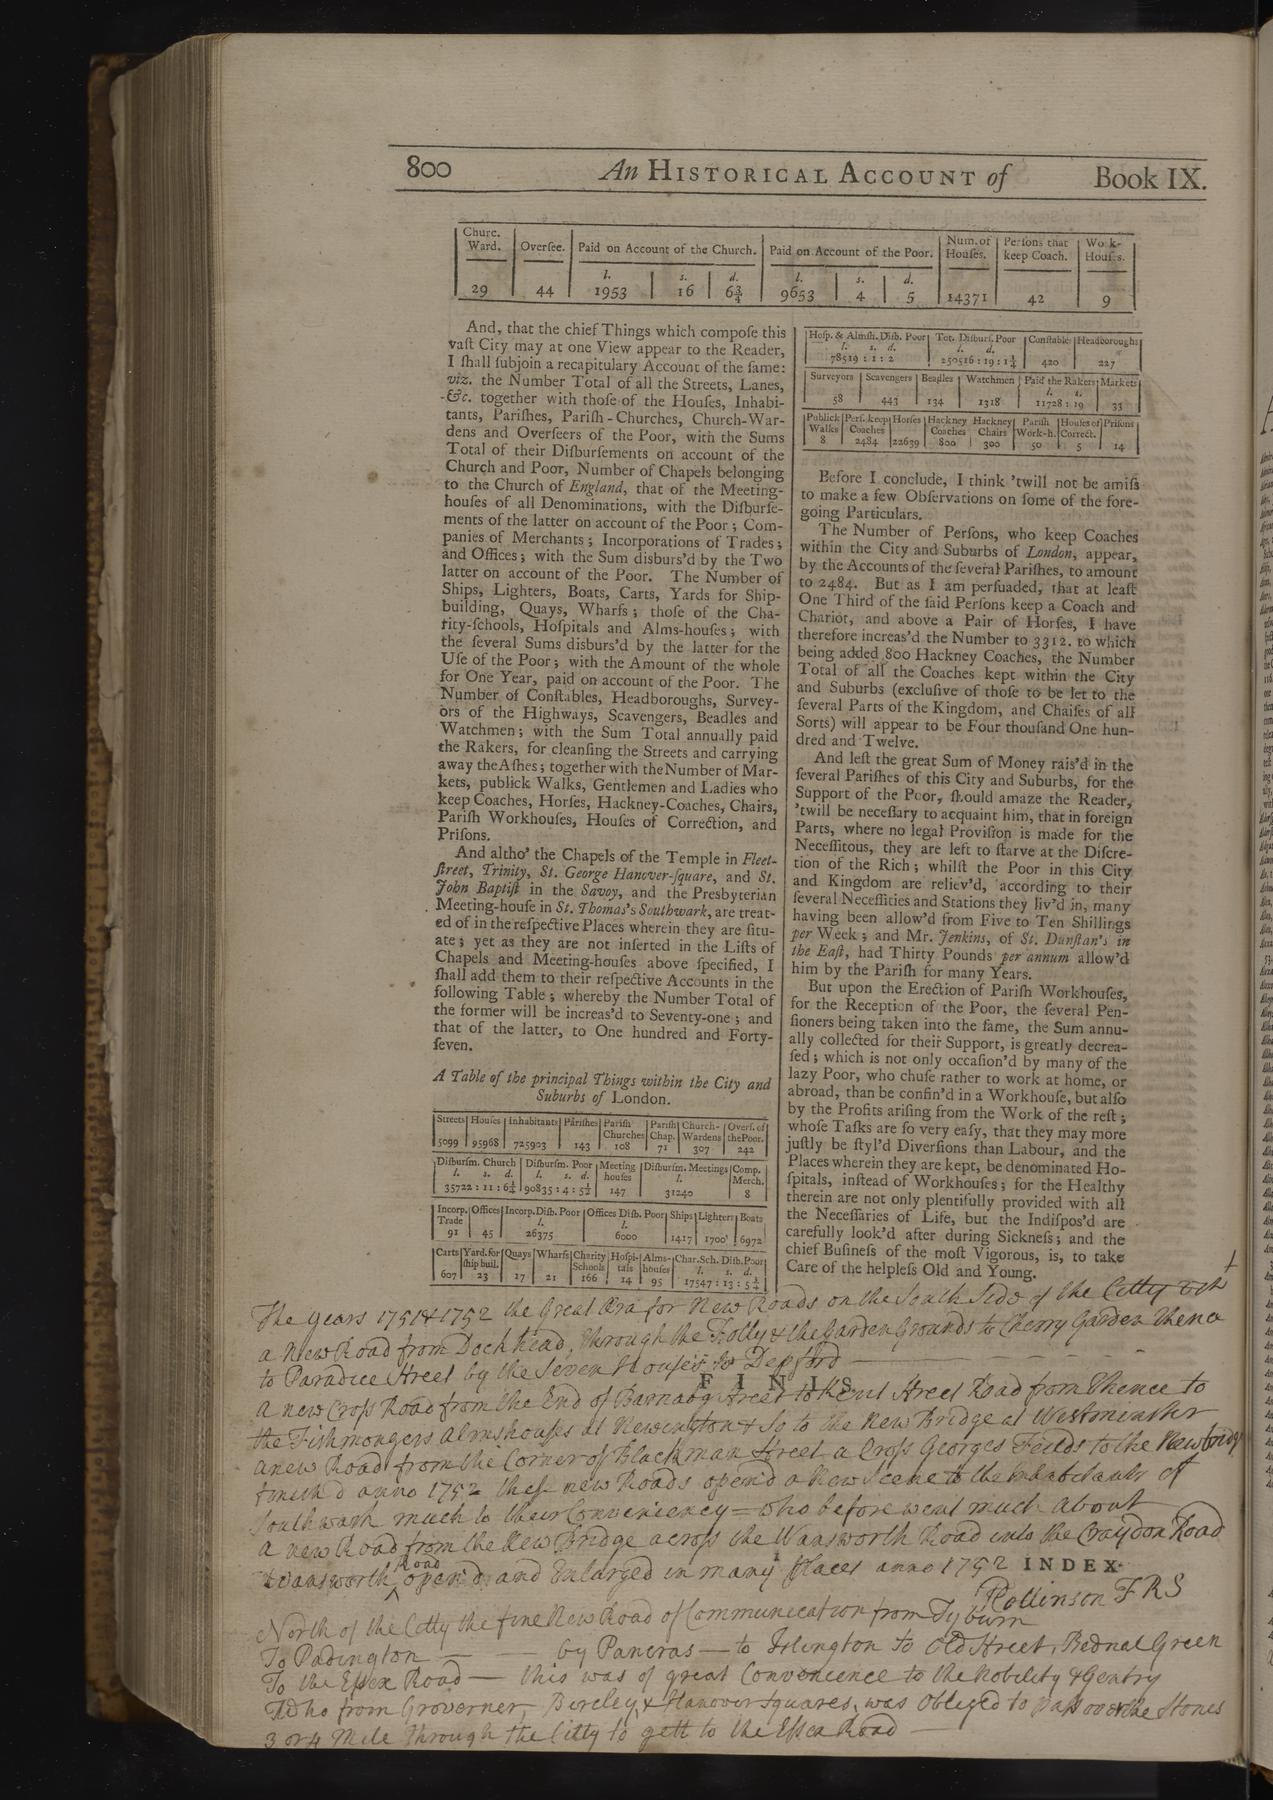 800 An HISTORICAL ACCOUNT of Book IX.
Churc. Ward. | Overſee. | Paid on Account of the Church. | Paid on Account of the Poor. | Num. of Houſes. | Perſons that keep Coach. | Work-Houſ s.
l. | s. | d. | l. | s. | d.
29 | 44 | 1953 | 16 | 6¾ | 9653 | 4 | 5 | 14371 | 42 | 9
And, that the chief Things which compoſe this
vaſt City may at one View appear to the Reader,
I ſhall ſubjoin a recapitulary Account of the ſame:
viz. the Number Total of all the Streets, Lanes,
&c. together with thoſe of the Houſes, Inhabi-
tants, Pariſhes, Pariſh-Churches, Church-War-
dens and Overſeers of the Poor, with the Sums
Total of their Diſburſements on account of the
Church and Poor, Number of Chapels belonging
to the Church of England, that of the Meeting-
houſes of all Denominations, with the Diſburſe-
ments of the latter on account of the Poor; Com-
panies of Merchants; Incorporations of Trades;
and Offices; with the Sum disburs'd by the Two
latter on account of the Poor. The Number of
Ships, Lighters, Boats, Carts, Yards for Ship-
building, Quays, Wharfs; thoſe of the Cha-
rity-ſchools, Hoſpitals and Alms-houſes; with
the ſeveral Sums disburs'd by the latter for the
Uſe of the Poor; with the Amount of the whole
for One Year, paid on account of the Poor. The
Number of Conſtables, Headboroughs, Survey-
ors of the Highways, Scavengers, Beadles and
Watchmen; with the Sum Total annually paid
the Rakers, for cleanſing the Streets and carrying
away the Aſhes; together with the Number of Mar-
kets, publick Walks, Gentlemen and Ladies who
keep Coaches, Horſes, Hackney-Coaches, Chairs,
Pariſh Workhouſes, Houſes of Correction, and
Priſons.
And altho' the Chapels of the Temple in Fleet-
ſtreet, Trinity, St. George Hanover-ſquare, and St.
John Baptiſt in the Savoy, and the Presbyterian
Meeting-houſe in St. Thomas's Southwark, are treat-
ed of in the reſpective Places wherein they are ſitu-
ate; yet as they are not inſerted in the Liſts of
Chapels and Meeting-houſes above ſpecified, I
ſhall add them to their reſpective Accounts in the
following Table; whereby the Number Total of
the former will be increas'd to Seventy-one; and
that of the latter, to One hundred and Forty-
ſeven.
A Table of the principal Things within the City and
Suburbs of London.
Streets | Houſes | Inhabitants | Pariſhes | Pariſh Churches | Pariſh Chap. | Church-Wardens | Overſ. of the Poor.
5099 | 95968 | 725903 | 143 | 108 | 71 | 307 | 242
Diſburſm. Church | Diſburſm. Poor | Meeting houſes | Diſburſm. Meetings | Comp. Merch.
l. s. d. | l. s. d. | l.
35722 : 11 : 6¼ | 90835 : 4 : 5½ | 147 | 31240 | 8
Incorp. Trade | Offices | Incorp. Diſb. Poor | Offices Diſb. Poor | Ships | Lighters | Boats
l. | l.
91 | 45 | 26375 | 6000 | 1417 | 1700 | 6972
Carts | Yard. for ſhip buil. | Quays | Wharfs | Charity Schools | Hoſpi-tals | Alms-houſes | Char. Sch. Diſb. Poor
l. s. d.
607 | 23 | 17 | 21 | 166 | 14 | 95 | 17547 : 13 : 5¼
Hoſp. & Almſh. Diſb. Poor | Tot. Disburſ. Poor | Conſtable | Headboroughs
l. s. d. | l. d.
78519 : 1 : 2 | 250516 : 19 : 1¼ | 420 | 227
Surveyors | Scavengers | Beadles | Watchmen | Paid the Rakers | Markets
l. s.
58 | 443 | 134 | 1318 | 11728 : 19 | 33
Publick Walks | Perſ. keep Coaches | Horſes | Hackney Coaches | Hackney Chairs | Pariſh Work-h. | Houſes of Correct. | Priſons
8 | 2484 | 22639 | 800 | 300 | 50 | 5 | 14
Before I conclude, I think 'twill not be amiſs
to make a few Obſervations on ſome of the fore-
going Particulars.
The Number of Perſons, who keep Coaches
within the City and Suburbs of London, appear,
by the Accounts of the ſeveral Pariſhes, to amount
to 2484. But as I am perſuaded, that at leaſt
One Third of the ſaid Perſons keep a Coach and
Chariot, and above a Pair of Horſes, I have
therefore increas'd the Number to 3312. to which
being added 800 Hackney Coaches, the Number
Total of all the Coaches kept within the City
and Suburbs (excluſive of thoſe to be let to the
ſeveral Parts of the Kingdom, and Chaiſes of all
Sorts) will appear to be Four thouſand One hun-
dred and Twelve.
And leſt the great Sum of Money rais'd in the
ſeveral Pariſhes of this City and Suburbs, for the
Support of the Poor, ſhould amaze the Reader,
'twill be neceſſary to acquaint him, that in foreign
Parts, where no legal Proviſion is made for the
Neceſſitous, they are left to ſtarve at the Diſcre-
tion of the Rich; whilſt the Poor in this City
and Kingdom are reliev'd, according to their
ſeveral Neceſſities and Stations they liv'd in, many
having been allow'd from Five to Ten Shillings
per Week; and Mr. Jenkins, of St. Dunſtan's in
the Eaſt, had Thirty Pounds per annum allow'd
him by the Pariſh for many Years.
But upon the Erection of Pariſh Workhouſes,
for the Reception of the Poor, the ſeveral Pen-
ſioners being taken into the ſame, the Sum annu-
ally collected for their Support, is greatly decrea-
ſed; which is not only occaſion'd by many of the
lazy Poor, who chuſe rather to work at home, or
abroad, than be confin'd in a Workhouſe, but alſo
by the Profits ariſing from the Work of the reſt;
whoſe Taſks are ſo very eaſy, that they may more
juſtly be ſtyl'd Diverſions than Labour, and the
Places wherein they are kept, be denominated Ho-
ſpitals, inſtead of Workhouſes; for the Healthy
therein are not only plentifully provided with all
the Neceſſaries of Life, but the Indiſpos'd are
carefully look'd after during Sickneſs; and the
chief Buſineſs of the moſt Vigorous, is, to take
Care of the helpleſs Old and Young.
The years 1751 & 1752 the Great Æra for New Roads on the South Side of the Citty
a New Road from Dock head, through the Folly & the Garden Grounds to Cherry Garden Thence
to Paradice Street by the Seven Houses to Depford
FINIS
a new Cross Road from the End of Barnaby Street to Kent Street Road from thence to
the Fishmongers Almshouses at Newington & So to the New Bridge at Westminster
a new Road from the Corner of Blackman Street a Cross Georges Feilds to the New bridge
finish'd anno 1752 these new Roads open'd a New Scene to the Inhabitants of
Southwark much to their Conveniency = who before went much about
a new Road from the New Bridge across the Wansworth Road into the Croydon Road
Wansworth Road open'd and Enlarged in many places anno 1752 INDEX
Rollinson FRS
North of the Citty the fine New Road of Communication from Tyburn
To Padington — — by Pancras — to Islington to Old Street, Bednal Green
To the Essex Road — this was of great Convenience to the Nobility & Gentry
Who from Groverner, Bercley, & Hanover Squares, was Obleged to pass over the Stones
3 or 4 Mile through the Citty to gett to the Essex Road —